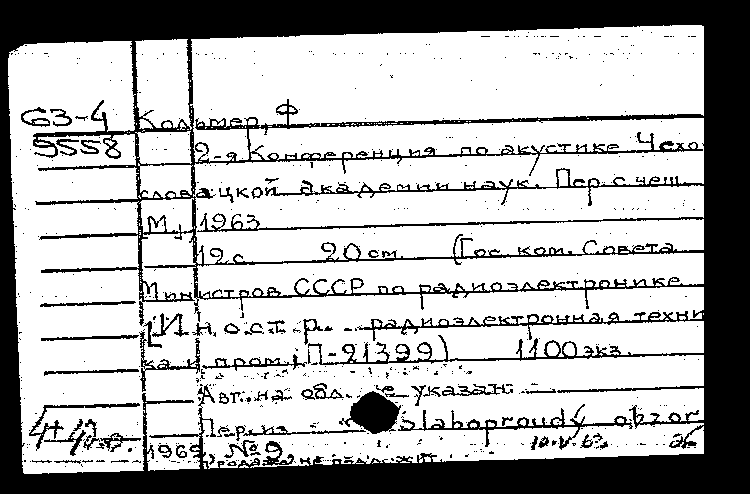 63-4 Кольмер, Ф
9558 2-я Конференция по акустике Чехо
словацкой академии наук. Пер. с чеш.
[М.], 1963
12 с. 20 см. (Гос. ком. Совета
Министров СССР по радиоэлектронике.
Иностр. радиоэлектронная техни
ка и пром.; П-21399) 1100 экз.
Авт. на обл. не указан.
Пер. из "Slaboproudý obzor
№ 9,
10.V.63.